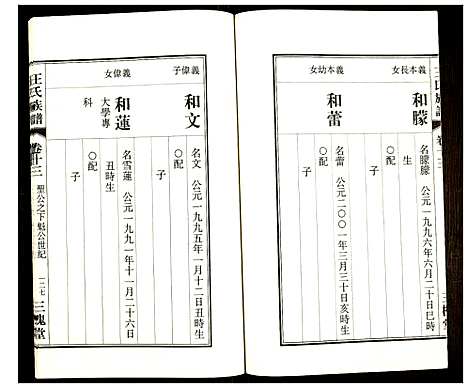 王氏族譜
卷十三
義本長女
和朦
名朦朦 公元一九九六年六月二十日巳時生
○配
子
義本幼女
和蕾
名蕾 公元二○○一年三月三十日亥時生
○配
子
義偉子
和文
名文 公元一九九五年一月十二日丑時生
○配
子
義偉女
和蓮
大學專科
名雪蓮 公元一九九一年十一月二十六日丑時生
○配
子
王氏族譜
卷十三
聖公之下魁公世紀
一二七
三槐堂